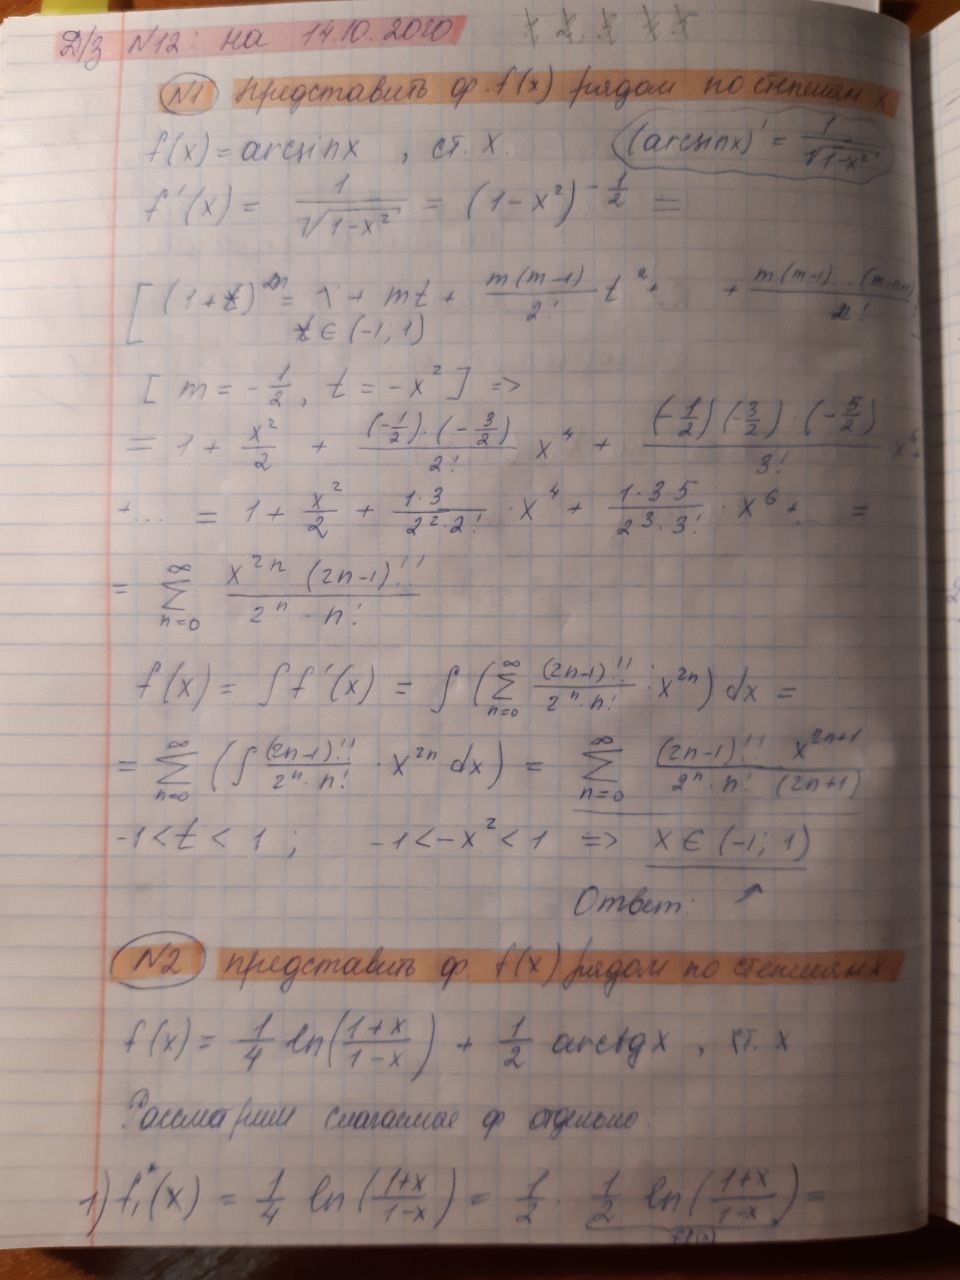 Д/з №12: на 14.10.2020
№1 Представить ф. f(x) рядом по степеням x
f(x) = arcsinx , ст. x. (arcsinx)' = 1/√(1-x²)
f'(x) = 1/√(1-x²) = (1-x²)^(-1/2) =
[ (1+t)^m = 1 + mt + m(m-1)/2! t² + + m(m-1)...(m-n+1)/n!
t ∈ (-1, 1)
[ m = -1/2 , t = -x² ] =>
= 1 + x²/2 + (-1/2)·(-3/2)/2! x⁴ + (-1/2)(-3/2)·(-5/2)/3! x⁶
+... = 1 + x²/2 + 1·3/(2²·2!) · x⁴ + 1·3·5/(2³·3!) · x⁶ + ... =
= ∑_{n=0}^{∞} x^{2n} (2n-1)!!/(2ⁿ · n!)
f(x) = ∫f'(x) = ∫(∑_{n=0}^{∞} (2n-1)!!/(2ⁿ·n!) · x^{2n}) dx =
= ∑_{n=0}^{∞} (∫(2n-1)!!/(2ⁿ·n!) · x^{2n} dx) = ∑_{n=0}^{∞} (2n-1)!! x^{2n+1}/(2ⁿ·n! (2n+1))
-1 < t < 1 ; -1 < -x² < 1 => x ∈ (-1; 1)
Ответ: ↗
№2 представить ф. f(x) рядом по степеням x
f(x) = 1/4 ln((1+x)/(1-x)) + 1/2 arctgx , ст. x
Рассмотрим слагаемое ф отдельно.
1) f₁(x) = 1/4 ln((1+x)/(1-x)) = 1/2 · 1/2 ln((1+x)/(1-x)) =